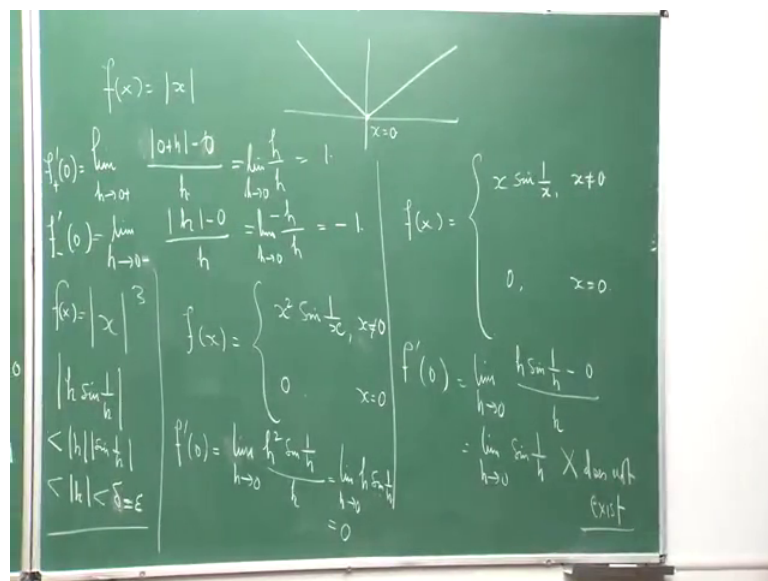 f(x) = |x|
x=0
f'₊(0) = lim_{h→0+} (|0+h| - 0)/h = lim_{h→0} h/h = 1.
f'₋(0) = lim_{h→0-} (|h| - 0)/h = lim_{h→0} -h/h = -1.
f(x) = |x|³
|h sin 1/h|
< |h| |sin 1/h|
< |h| < δ = ε
f(x) = { x² sin 1/x, x≠0
0 x=0
f'(0) = lim_{h→0} (h² sin 1/h)/h = lim_{h→0} h sin 1/h
= 0
f(x) = { x sin 1/x, x≠0
0, x=0.
f'(0) = lim_{h→0} (h sin 1/h - 0)/h
= lim_{h→0} sin 1/h X does not
exist
0